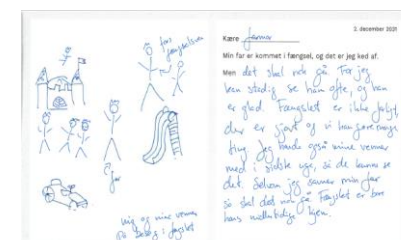 far
fængselsven
far
mig og mine venner
på besøg i fængslet
2. december 2021
Kære
Min far er kommet i fængsel, og det er jeg ked af.
Men det skal nok gå. For jeg
kan stadig se ham ofte, og han
er glad. Fængslet er ikke farligt,
der er sjovt og vi kan lave mange
ting. Jeg havde også mine venner
med i sidste uge, så de kunne se
det. Selvom jeg savner min far
så skal det nok gå. Fængslet er bare
hans midlertidige hjem.